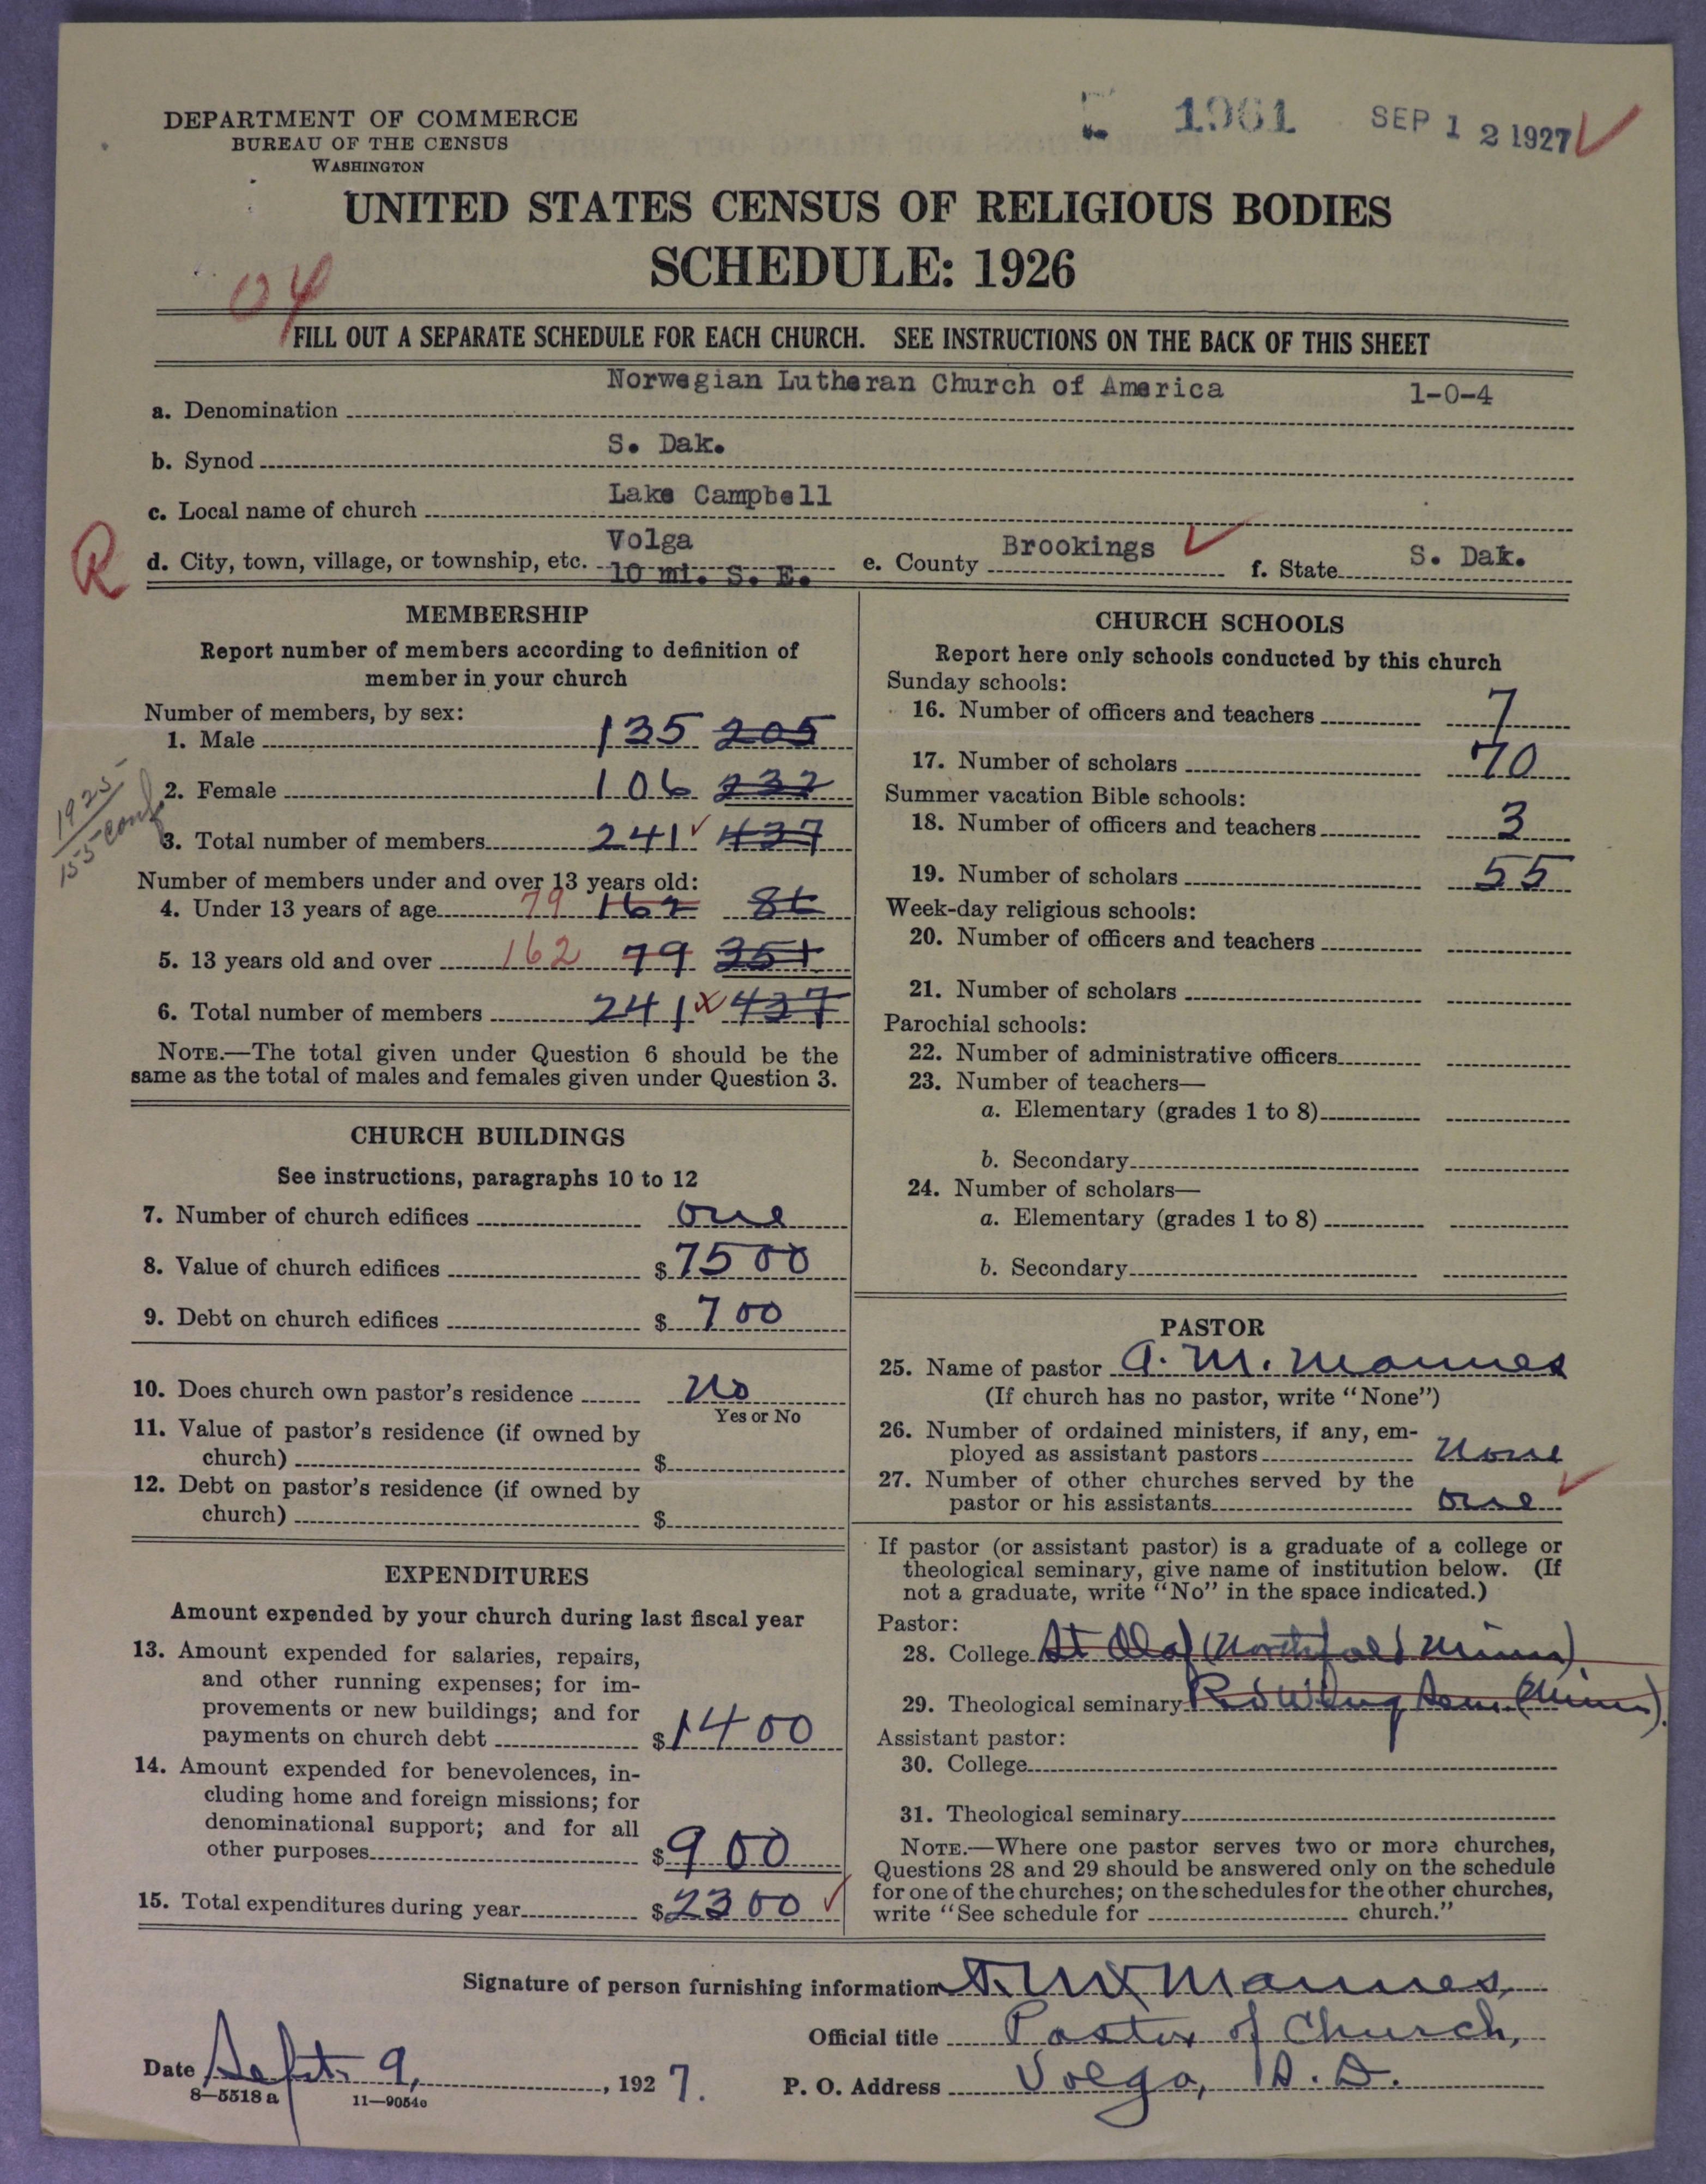 DEPARTMENT OF COMMERCE
BUREAU OF THE CENSUS
WASHINGTON
1961 SEP 12 1927
UNITED STATES CENSUS OF RELIGIOUS BODIES
SCHEDULE: 1926
04
FILL OUT A SEPARATE SCHEDULE FOR EACH CHURCH. SEE INSTRUCTIONS ON THE BACK OF THIS SHEET
a. Denomination Norwegian Lutheran Church of America 1-0-4
b. Synod S. Dak.
c. Local name of church Lake Campbell
R
d. City, town, village, or township, etc. Volga 10 mi. S. E. e. County Brookings f. State S. Dak.
MEMBERSHIP
Report number of members according to definition of
member in your church
Number of members, by sex:
1. Male 135 205
2. Female 106 232
1925
155 conf
3. Total number of members 241 437
Number of members under and over 13 years old:
4. Under 13 years of age 79 162 86
5. 13 years old and over 162 79 351
6. Total number of members 241 x 437
NOTE.—The total given under Question 6 should be the
same as the total of males and females given under Question 3.
CHURCH BUILDINGS
See instructions, paragraphs 10 to 12
7. Number of church edifices one
8. Value of church edifices $ 7500
9. Debt on church edifices $ 700
10. Does church own pastor's residence No
Yes or No
11. Value of pastor's residence (if owned by
church) $
12. Debt on pastor's residence (if owned by
church) $
EXPENDITURES
Amount expended by your church during last fiscal year
13. Amount expended for salaries, repairs,
and other running expenses; for im-
provements or new buildings; and for
payments on church debt $ 1400
14. Amount expended for benevolences, in-
cluding home and foreign missions; for
denominational support; and for all
other purposes $ 900
15. Total expenditures during year $ 2300
CHURCH SCHOOLS
Report here only schools conducted by this church
Sunday schools:
16. Number of officers and teachers 7
17. Number of scholars 70
Summer vacation Bible schools:
18. Number of officers and teachers 3
19. Number of scholars 55
Week-day religious schools:
20. Number of officers and teachers
21. Number of scholars
Parochial schools:
22. Number of administrative officers
23. Number of teachers—
a. Elementary (grades 1 to 8)
b. Secondary
24. Number of scholars—
a. Elementary (grades 1 to 8)
b. Secondary
PASTOR
25. Name of pastor A. M. Mannes
(If church has no pastor, write "None")
26. Number of ordained ministers, if any, em-
ployed as assistant pastors None
27. Number of other churches served by the
pastor or his assistants one
If pastor (or assistant pastor) is a graduate of a college or
theological seminary, give name of institution below. (If
not a graduate, write "No" in the space indicated.)
Pastor:
28. College St Olaf (Northfield Minn)
29. Theological seminary Red Wing Sem. (Minn).
Assistant pastor:
30. College
31. Theological seminary
NOTE.—Where one pastor serves two or more churches,
Questions 28 and 29 should be answered only on the schedule
for one of the churches; on the schedules for the other churches,
write "See schedule for church."
Signature of person furnishing information A. M. Mannes,
Official title Pastor of Church,
Date Sept. 9, 1927.
P. O. Address Volga, S. D.
8—5518 a 11—9054c